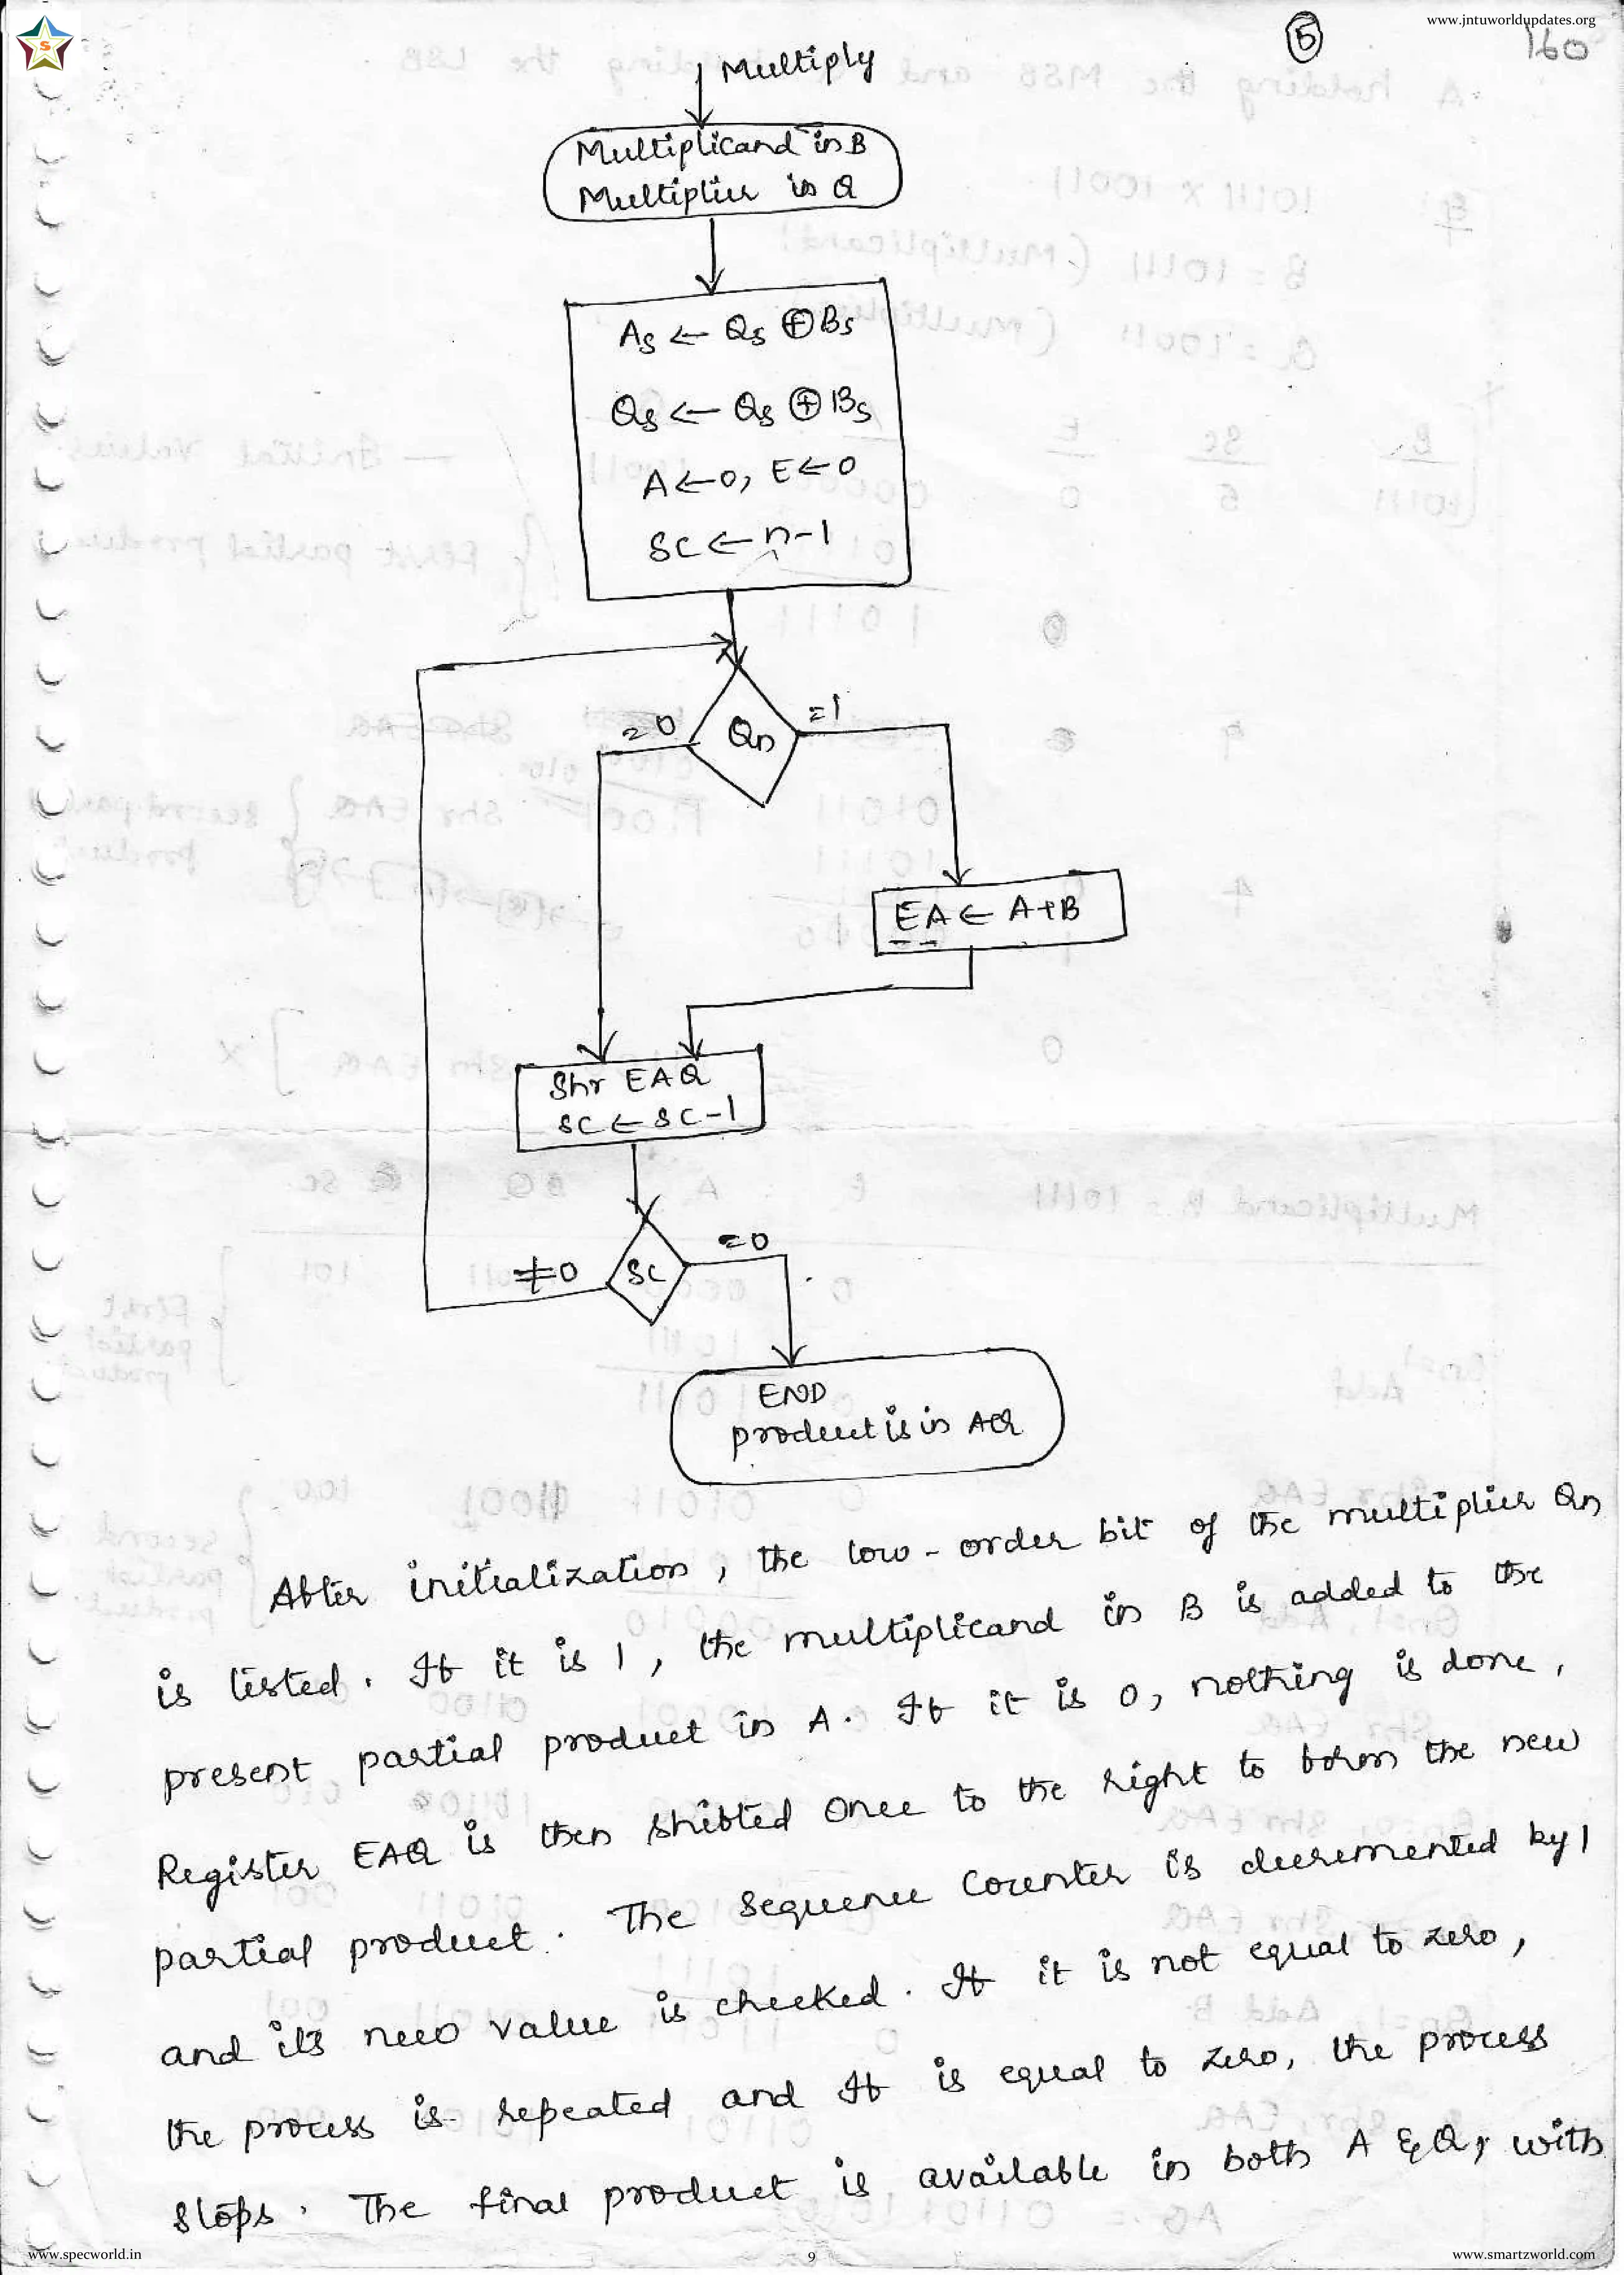 www.jntuworldupdates.org
S
5
160
Multiply
Multiplicand in B
Multiplier in Q
As ← Qs ⊕ Bs
Qs ← Qs ⊕ Bs
A ← 0, E ← 0
SC ← n-1
=0
Qn
=1
EA ← A+B
Shr EAQ
SC ← SC-1
≠0
SC
=0
END
product is in AQ
After initialization, the low-order bit of the multiplier Qn
is tested. If it is 1, the multiplicand in B is added to the
present partial product in A. If it is 0, nothing is done,
Register EAQ is then shifted once to the right to form the new
partial product. The sequence counter is decremented by 1
and its new value is checked. If it is not equal to zero,
the process is repeated and If is equal to zero, the process
stops. The final product is available in both A & Q, with
www.specworld.in
9
www.smartzworld.com